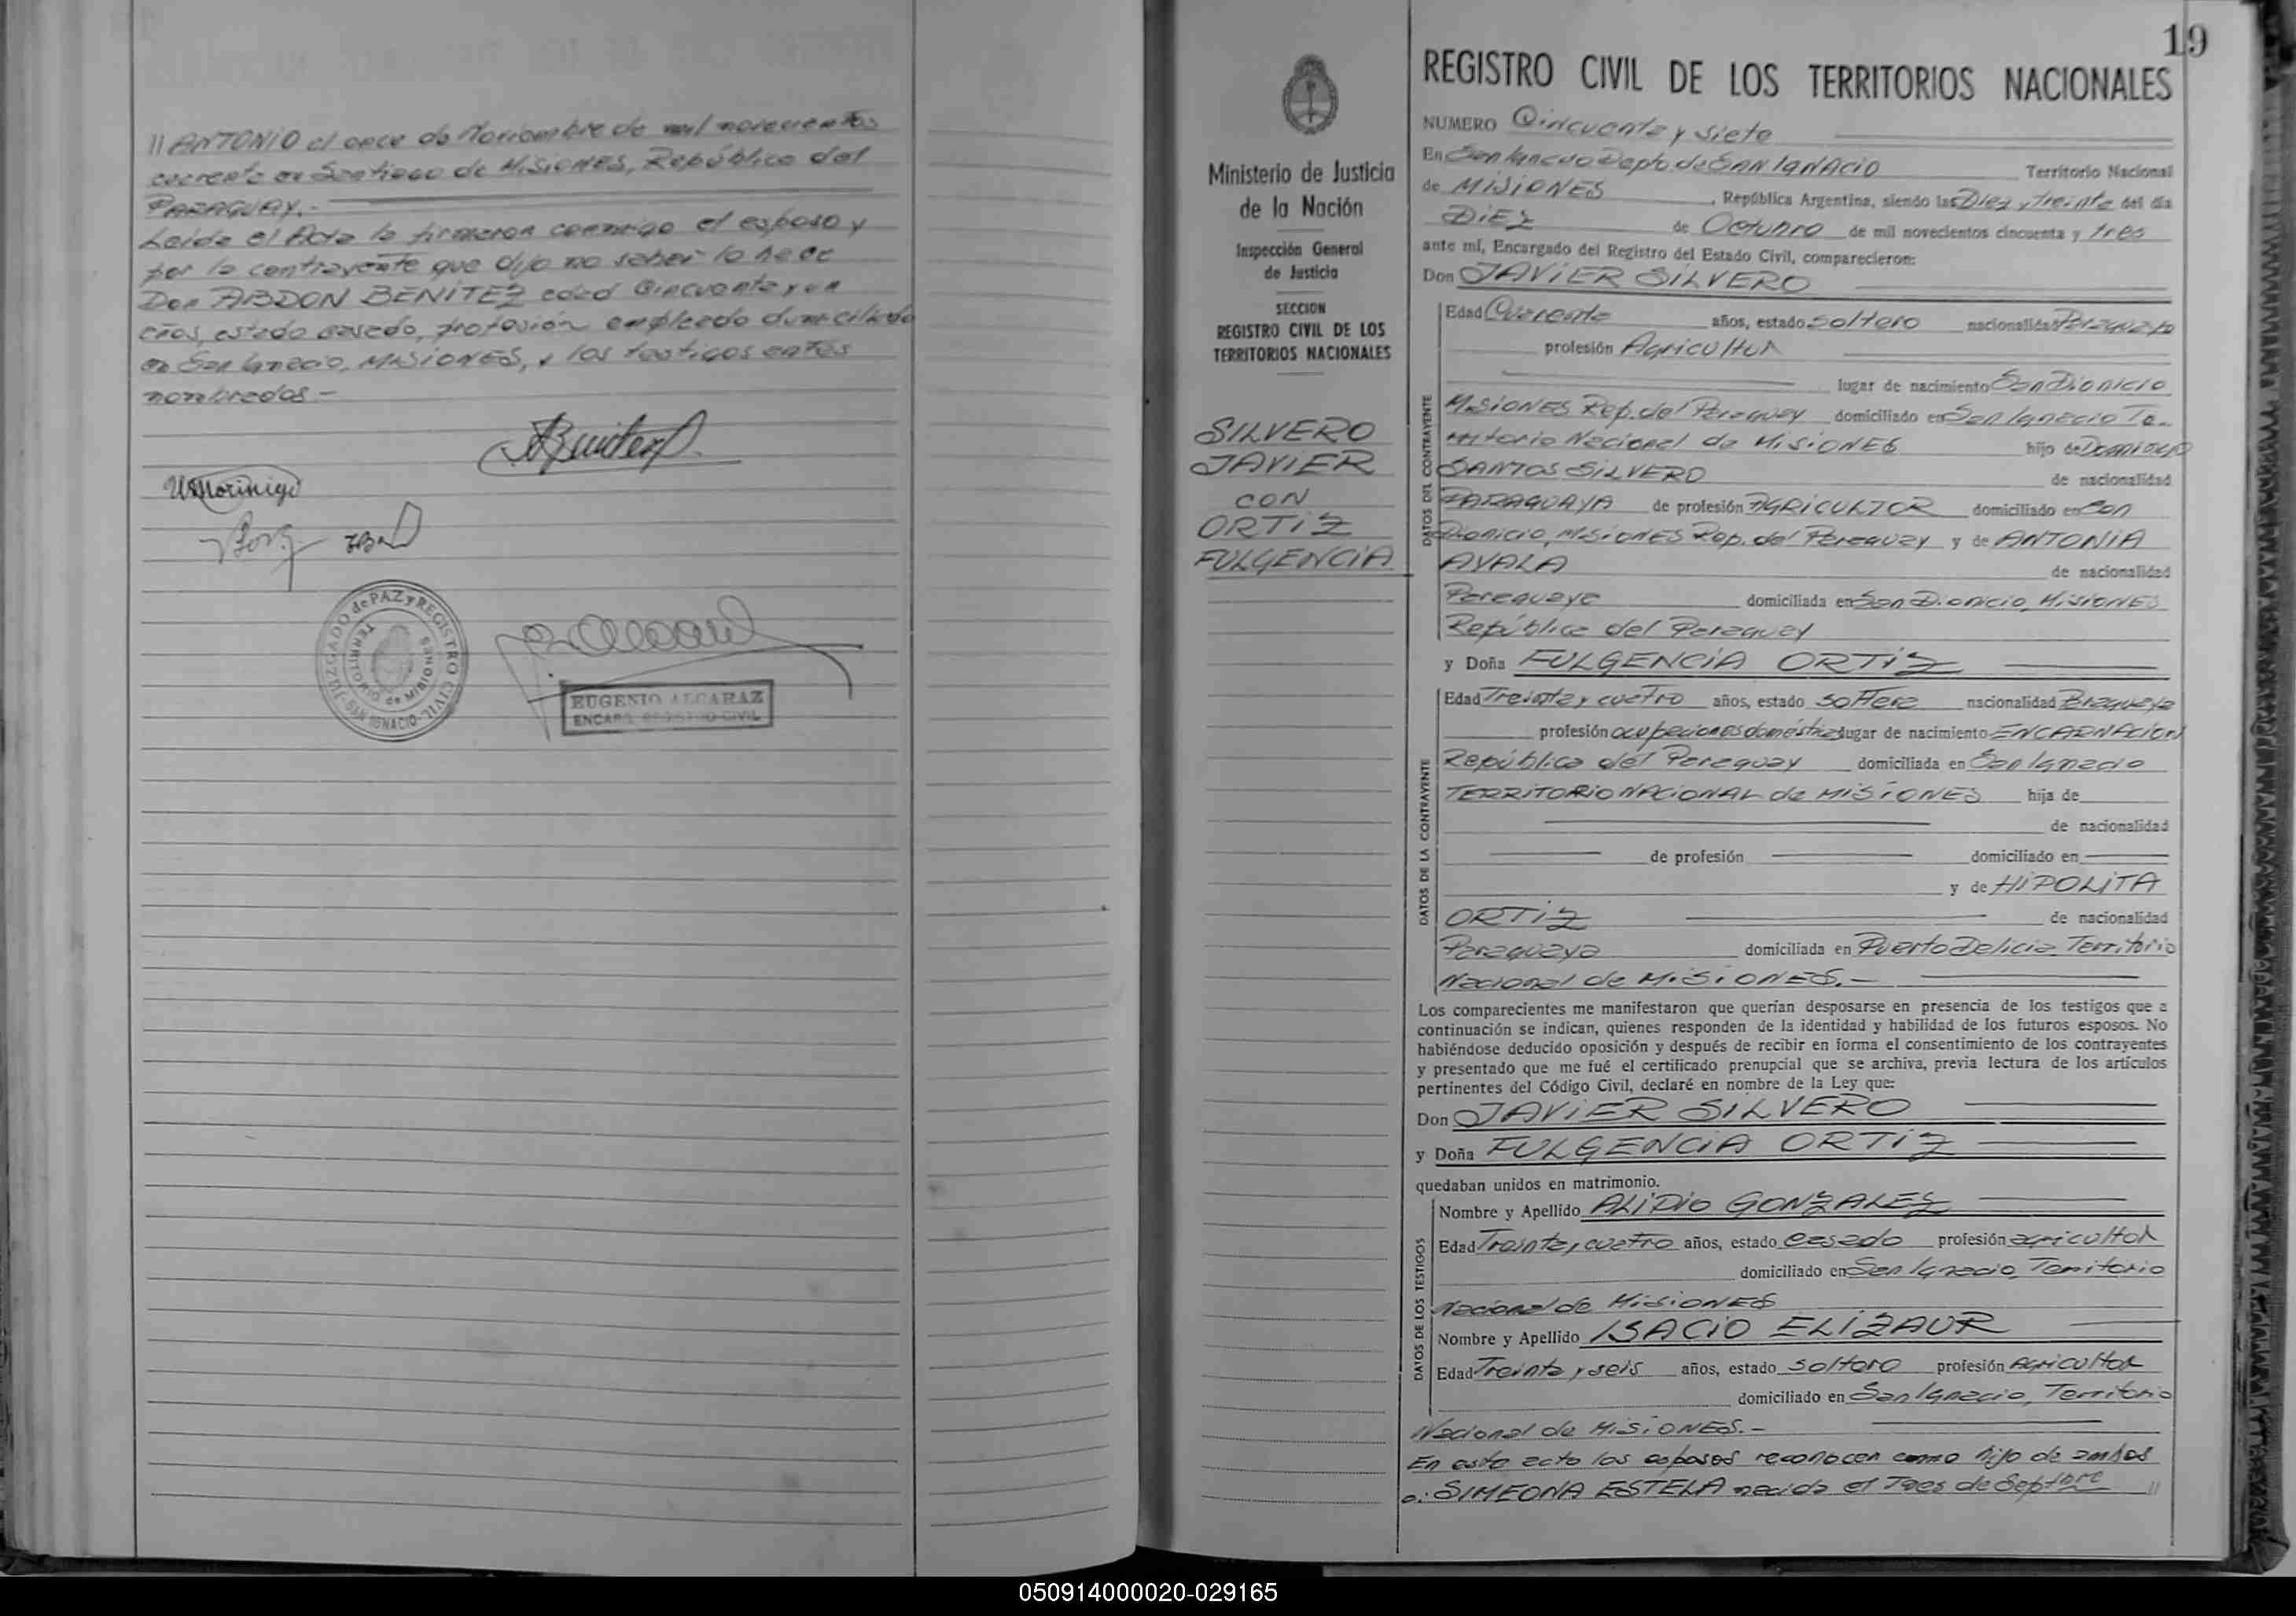 // ANTONIO el once de Noviembre de mil novecientos
cuarenta en Santiago de MISIONES, República del
PARAGUAY.-
Leida el Acta la firmaron conmigo el esposo y
por la contrayente que dijo no saber lo hace
Don ABDON BENITEZ edad Cincuenta y un
años, estado casado, profesión empleado domiciliado
en San Ignacio, MISIONES, y los testigos antes
nombrados -
JUZGADO de PAZ y REGISTRO CIVIL
TERRITORIO de MISIONES
SAN IGNACIO
EUGENIO ALCARAZ
ENCARG. REGISTRO CIVIL
19
Ministerio de Justicia
de la Nación
Inspección General
de Justicia
SECCION
REGISTRO CIVIL DE LOS
TERRITORIOS NACIONALES
SILVERO
JAVIER
CON
ORTIZ
FULGENCIA
REGISTRO CIVIL DE LOS TERRITORIOS NACIONALES
NUMERO Cincuenta y siete
En San Ignacio Depto de SAN IGNACIO Territorio Nacional
de MISIONES, República Argentina, siendo las Diez y treinta del día
DIEZ de Octubre de mil novecientos cincuenta y tres
ante mí, Encargado del Registro del Estado Civil, comparecieron:
Don JAVIER SILVERO
DATOS DEL CONTRAYENTE
Edad Cuarenta años, estado soltero nacionalidad Paraguaya
profesión Agricultor
lugar de nacimiento San Dionicio
MISIONES Rep. del Paraguay domiciliado en San Ignacio Te-
rritorio Nacional de MISIONES hijo de
SANTOS SILVERO de nacionalidad
PARAGUAYA de profesión AGRICULTOR domiciliado en San
Dionicio, MISIONES Rep. del Paraguay y de ANTONIA
AYALA de nacionalidad
Paraguaya domiciliada en San Dionicio, MISIONES
República del Paraguay
y Doña FULGENCIA ORTIZ
DATOS DE LA CONTRAYENTE
Edad Treinta y cuatro años, estado soltera nacionalidad Paraguaya
profesión ocupaciones domésticas lugar de nacimiento ENCARNACION
República del Paraguay domiciliada en San Ignacio
TERRITORIO NACIONAL de MISIONES hija de
de nacionalidad
de profesión domiciliado en
y de HIPOLITA
ORTIZ de nacionalidad
Paraguaya domiciliada en Puerto Delicia Territorio
Nacional de MISIONES.-
Los comparecientes me manifestaron que querían desposarse en presencia de los testigos que a
continuación se indican, quienes responden de la identidad y habilidad de los futuros esposos. No
habiéndose deducido oposición y después de recibir en forma el consentimiento de los contrayentes
y presentado que me fué el certificado prenupcial que se archiva, previa lectura de los artículos
pertinentes del Código Civil, declaré en nombre de la Ley que:
Don JAVIER SILVERO
y Doña FULGENCIA ORTIZ
quedaban unidos en matrimonio.
DATOS DE LOS TESTIGOS
Nombre y Apellido ALIPIO GONZALEZ
Edad Treinta y cuatro años, estado casado profesión agricultor
domiciliado en San Ignacio, Territorio
Nacional de MISIONES
Nombre y Apellido ISACIO ELIZAUR
Edad Treinta y seis años, estado soltero profesión Agricultor
domiciliado en San Ignacio, Territorio
Nacional de MISIONES.-
En este acto los esposos reconocen como hijo de ambos
a: SIMEONA ESTELA nacida el Tres de Septbre //
050914000020-029165